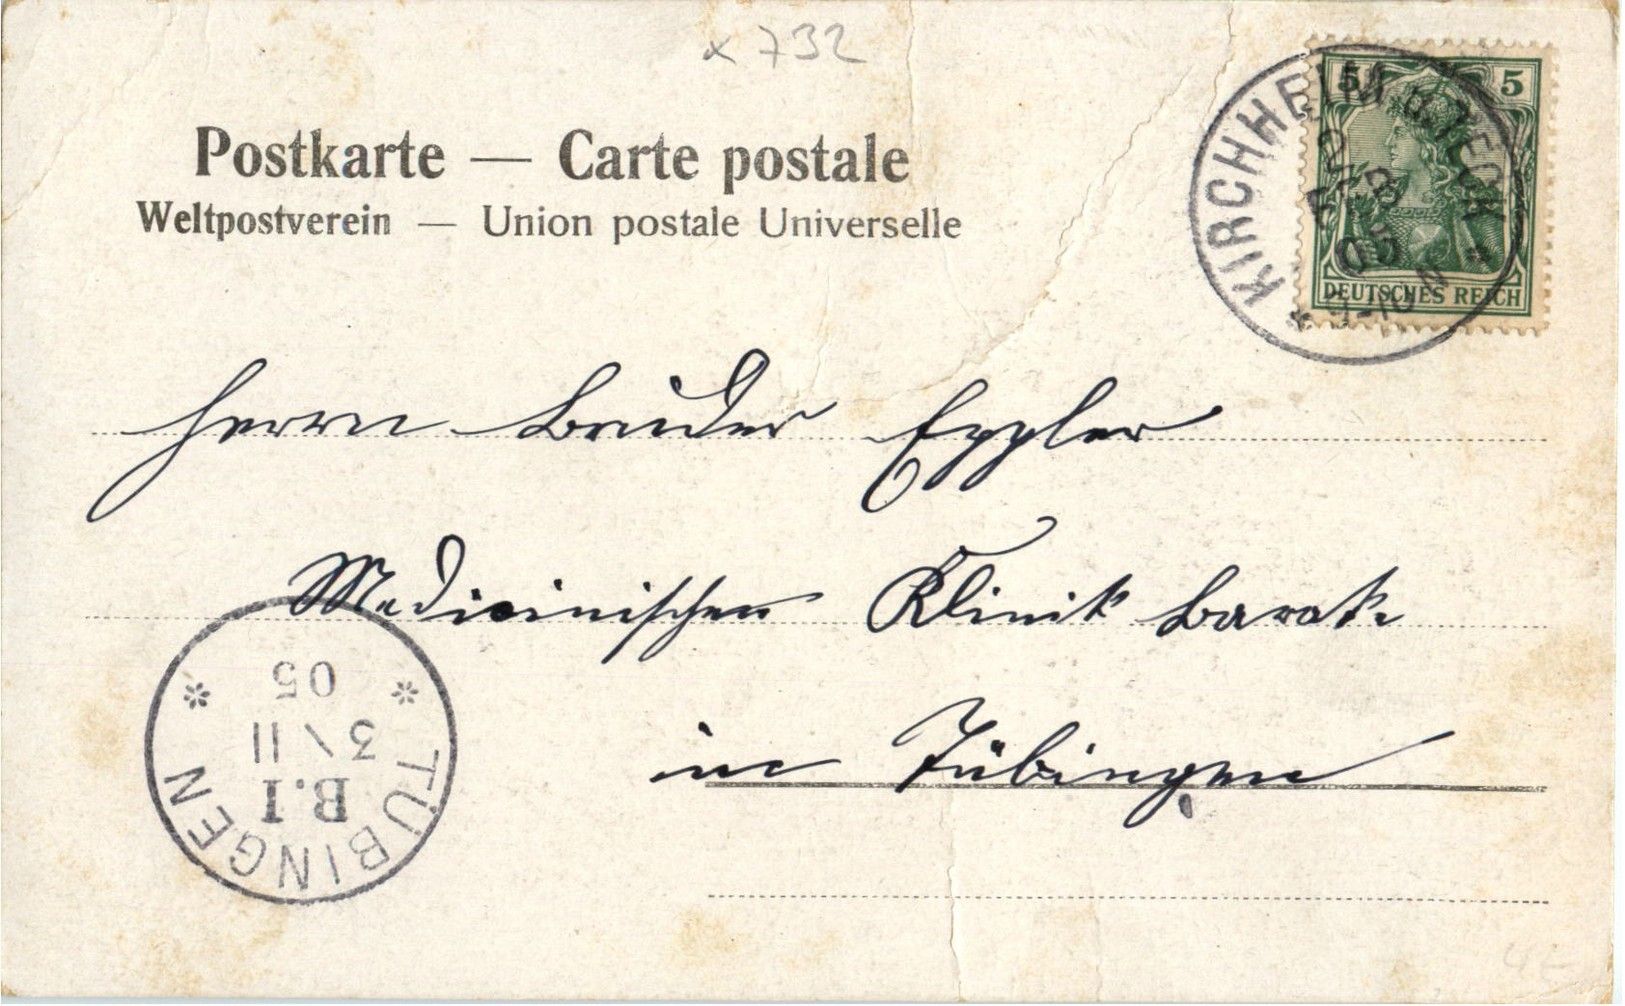 x 732
Postkarte — Carte postale
Weltpostverein — Union postale Universelle
5 5
DEUTSCHES REICH
KIRCHHEIM u. TECK
3
05
Herrn Bruder Eppler
Medicinischen Klinik Barak
in Tübingen
TÜBINGEN
B.I
3 \ II
05